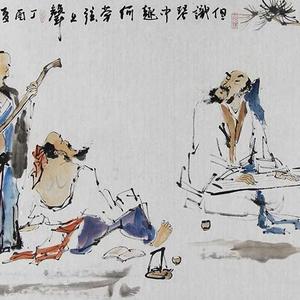 但識琴中趣何劳弦上聲丁酉夏